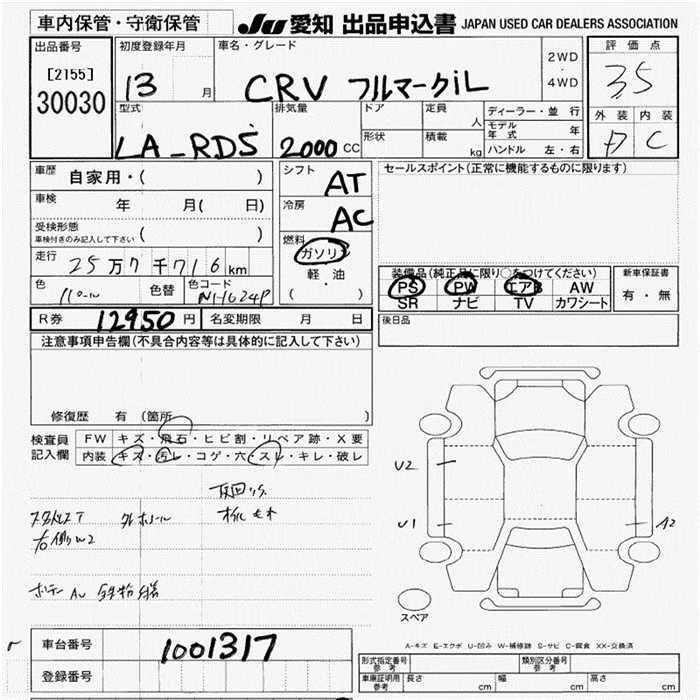 車内保管・守衛保管
JU 愛知 出品申込書 JAPAN USED CAR DEALERS ASSOCIATION
出品番号
[2155]
30030
初度登録年月
13 月
車名・グレード
CRV フルマークiL
2WD
・
4WD
評価点
3.5
外装 内装
D C
型式
LA-RD5
排気量
2000 CC
ドア
形状
定員
人
積載
kg
ディーラー・並行
モデル年式 年
ハンドル 左・右
車歴
自家用・( )
車検
年 月( 日)
受検形態
車検付きのみ記入して下さい ( )
走行
25万7千716km
色
色替
色コード
シフト
AT
冷房
AC
燃料
ガソリン
軽油
( ・ )
セールスポイント(正常に機能するものに限ります)
装備品(純正品に限り○をつけてください)
PS PW エアB AW
SR ナビ TV カワシート
新車保証書
有・無
後日品
R券 12950 円
名変期限 月 日
注意事項申告欄(不具合内容等は具体的に記入して下さい)
修復歴 有(箇所 )
検査員
記入欄
FW キズ・飛石・ヒビ割・リペア跡・X要
内装 キズ・汚レ・コゲ・穴・スレ・キレ・破レ
U2
U1
A2
スペア
A-キズ E-エクボ U-凹み W-補修跡 S-サビ C-腐食 XX-交換済
車台番号
1001317
登録番号
型式指定番号
参考
類別区分番号
参考
車庫証明用
参考
長さ cm
幅 cm
高さ cm